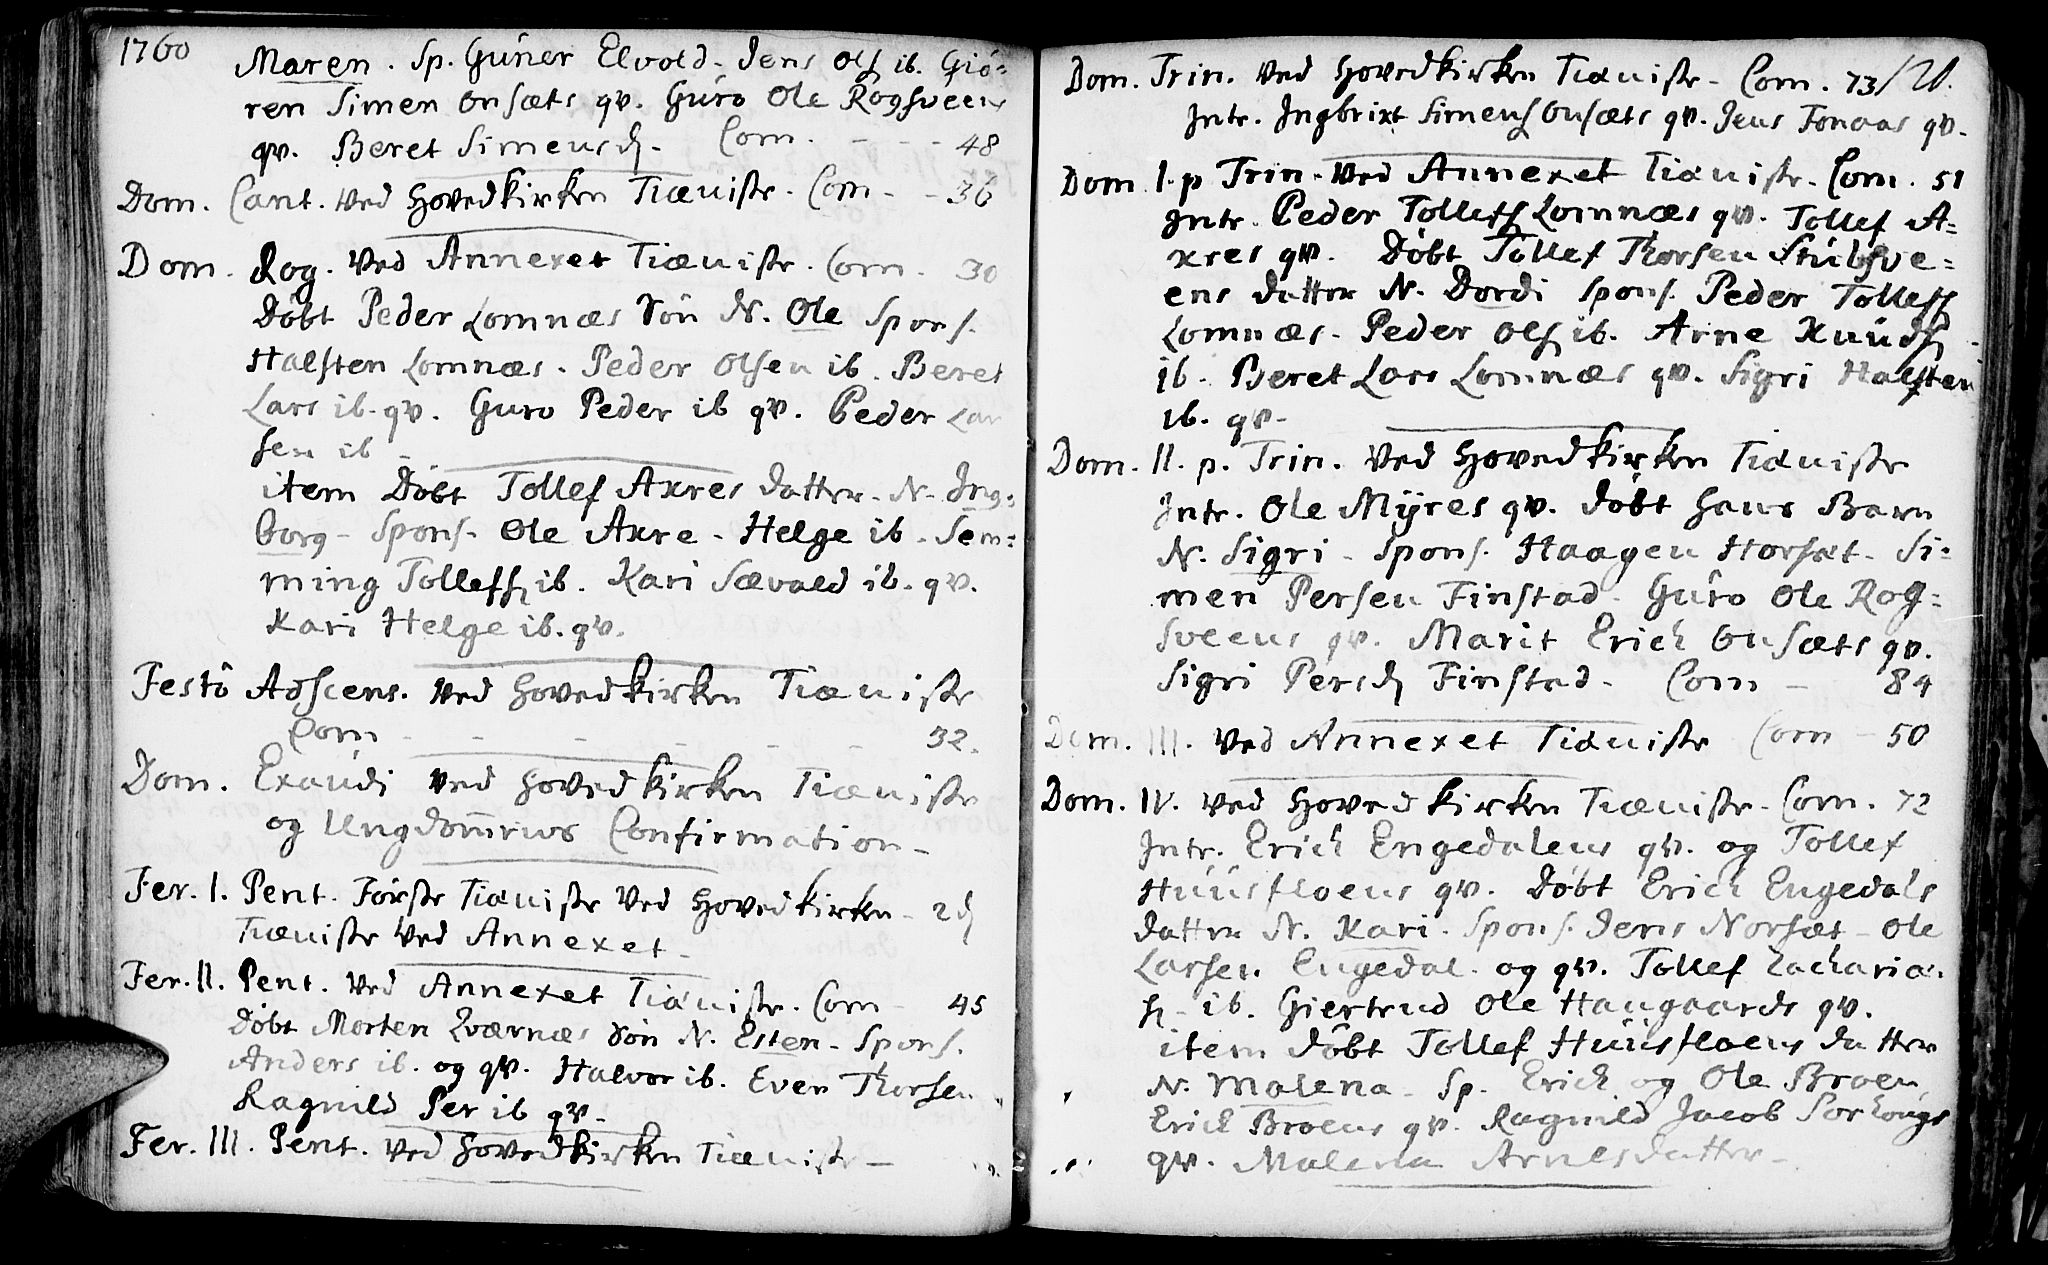 1760
Maren. Sp. Guner Elvold. Jens Ols ib. Giö-
ren Simen Onsæts qv. Guro Ole Rogsveens
qv. Beret Simensd. Com. - - - 48
Dom. Cant. ved Hovedkirken Tieniste. Com - - 36
Dom. Rog. Ved Annexet Tieniste. Com. 30
Döbt Peder Lomnæs Sön N. Ole Spons.
Halsten Lomnæs. Peder Olsen ib. Beret
Lars ib. qv. Guro Peder ib qv. Peder Lar
sen ib -
item Döbt Tollef Axres datter. N. Ing-
borg - Spons. Ole Axre. Helge ib. Sem-
ming Tollefs ib. Kari Sævald ib. qv.
Kari Helge ib. qv.
Festo Adscens. ved Hovedkirken Tieniste
Com - - - - - 32.
Dom. Exaudi ved Hovedkirken Tieniste
og Ungdommens Confirmation -
Fer. I. Pent. Förste Tieniste Ved Hovedkirken - 2d
Tieniste Ved Annexet -
Fer. II. Pent. Ved Annexet Tieniste. Com - 45
Döbt Morten Qværnæs Sön N. Esten - Spons.
Anders ib. og qv. Halvor ib. Even Thorsen
Ragnild Per ib qv -
Fer. III. Pent. ved Hovedkirken Tieniste -
Dom. Trin. Ved Hovedkirken Tieniste - Com. 73
Intr. Ingbrixt Simens Onsæts qv. Jens Fonaas qv.
Dom. I. p Trin. Ved Annexet Tieniste. Com. 51
Intr. Peder Tollefs Lomnæs qv. Tollef A-
xres qv. Döbt Tollef Thorsen Stubsve-
ens datter N. Dordi Spons. Peder Tollefs
Lomnæs. Peder Ols ib. Arne Knuds
ib. Beret Lars Lomnæs qv. Sigri Halsten
ib. qv -
Dom. II. p. Trin. Ved Hovedkirken Tieniste
Intr. Ole Myres qv. döbt hans Barn
N. Sigri - Spons. Haagen Horsæt. Si-
men Persen Finstad. Guro Ole Rog-
sveens qv. Marit Erich Onsæts qv.
Sigri Persd Finstad - Com - 84
Dom. III. Ved Annexet Tieniste Com - 50
Dom. IV. ved Hovedkirken Tieniste - Com. 72
Intr. Erich Engedalens qv. og Tollef
Huusfloens qv. Döbt Erich Engedals
datter N. Kari. Spons. Jens Norsæt - Ole
Larsen Engedal. og qv. Tollef Zacharia-
s. ib. Giertrud Ole Haugaards qv.
item döbt Tollef Huusfloens datter
N. Malena - Sp. Erich og Ole Broen
Erich Broens qv. Ragnild Jacob Sorhougs
qv. Malena Arnesdatter -